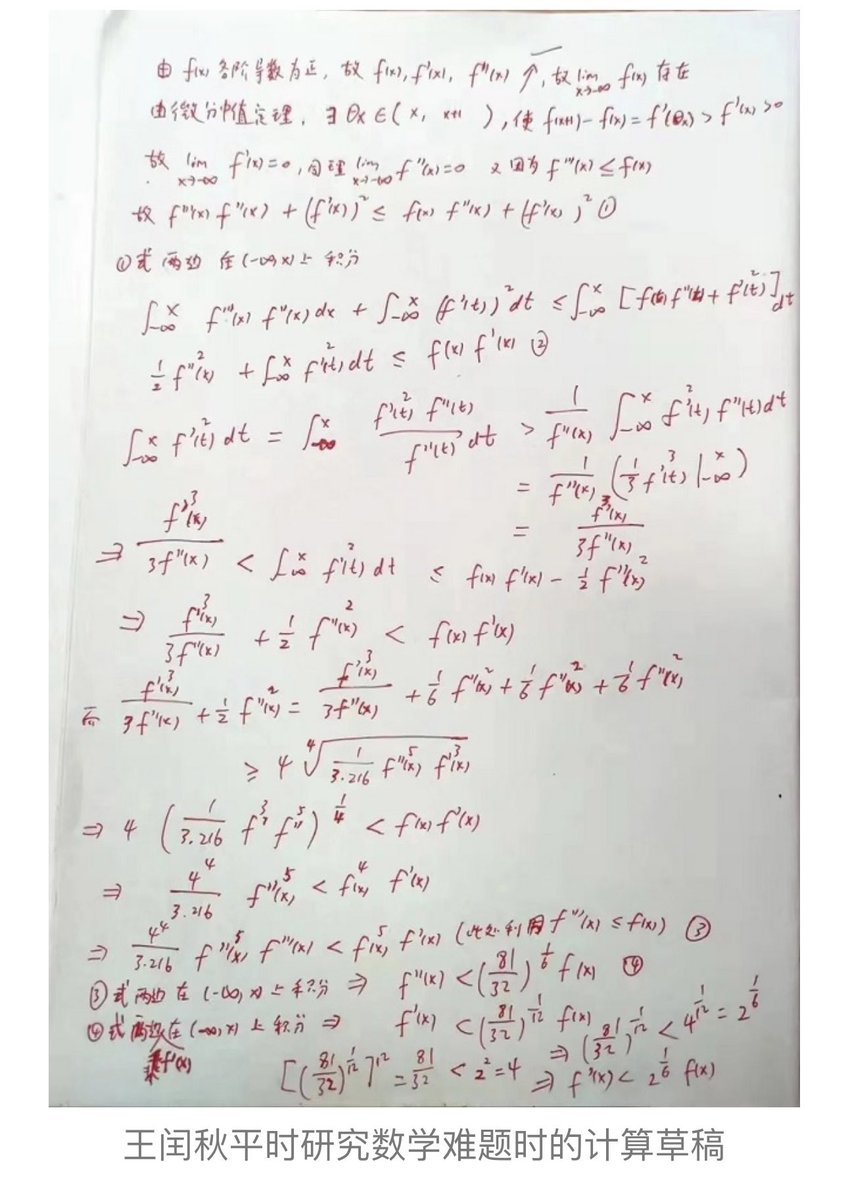 由 f(x) 各阶导数为正, 故 f(x), f'(x), f''(x) ↑, 故 lim_{x→-∞} f(x) 存在
由微分中值定理, ∃ θx ∈ (x, x+1), 使 f(x+1) - f(x) = f'(θx) > f'(x) > 0
故 lim_{x→-∞} f'(x) = 0, 同理 lim_{x→-∞} f''(x) = 0 又因为 f'''(x) ≤ f(x)
故 f'''(x) f''(x) + (f'(x))^2 ≤ f(x) f''(x) + (f'(x))^2 ①
①式 两边 在 (-∞, x) 上 积分
∫_{-∞}^{x} f'''(x) f''(x) dx + ∫_{-∞}^{x} (f'(t))^2 dt ≤ ∫_{-∞}^{x} [f(t) f''(t) + f'(t)^2] dt
1/2 f''(x)^2 + ∫_{-∞}^{x} f'(t)^2 dt ≤ f(x) f'(x) ②
∫_{-∞}^{x} f'(t)^2 dt = ∫_{-∞}^{x} f'(t)^2 f''(t) / f''(t) dt > 1/f''(x) ∫_{-∞}^{x} f'(t)^2 f''(t) dt
= 1/f''(x) (1/3 f'(t)^3 |_{-∞}^{x})
= f'(x)^3 / 3f''(x)
⇒ f'(x)^3 / 3f''(x) < ∫_{-∞}^{x} f'(t)^2 dt ≤ f(x) f'(x) - 1/2 f''(x)^2
⇒ f'(x)^3 / 3f''(x) + 1/2 f''(x)^2 < f(x) f'(x)
而 f'(x)^3 / 3f''(x) + 1/2 f''(x)^2 = f'(x)^3 / 3f''(x) + 1/6 f''(x)^2 + 1/6 f''(x)^2 + 1/6 f''(x)^2
≥ 4 ∜(1/3·216 f''(x)^5 f'(x)^3)
⇒ 4 (1/3·216 f'^3 f''^5)^{1/4} < f(x) f'(x)
⇒ 4^4/3·216 f''(x)^5 < f(x)^4 f'(x)
⇒ 4^4/3·216 f''(x)^5 f'''(x) < f(x)^5 f'(x) (此处利用 f'''(x) ≤ f(x)) ③
③式 两边 在 (-∞, x) 上 积分 ⇒ f''(x) < (81/32)^{1/6} f(x) ④
④式 两边 乘f'(x) 在 (-∞, x) 上 积分 ⇒ f'(x) < (81/32)^{1/12} f(x)
[(81/32)^{1/12}]^{12} = 81/32 < 2^2 = 4 ⇒ (81/32)^{1/12} < 4^{1/12} = 2^{1/6}
⇒ f'(x) < 2^{1/6} f(x)
王闰秋平时研究数学难题时的计算草稿